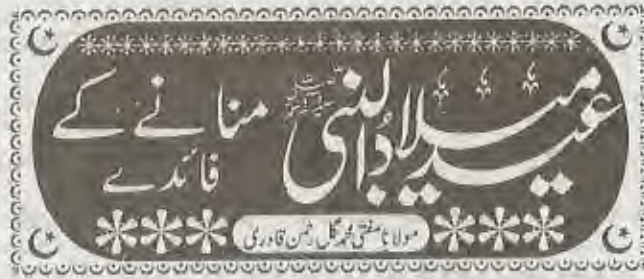 عید میلاد النبی ﷺ منانے کے
فائدے
مولانا مفتی محمد گل رحمٰن قادری